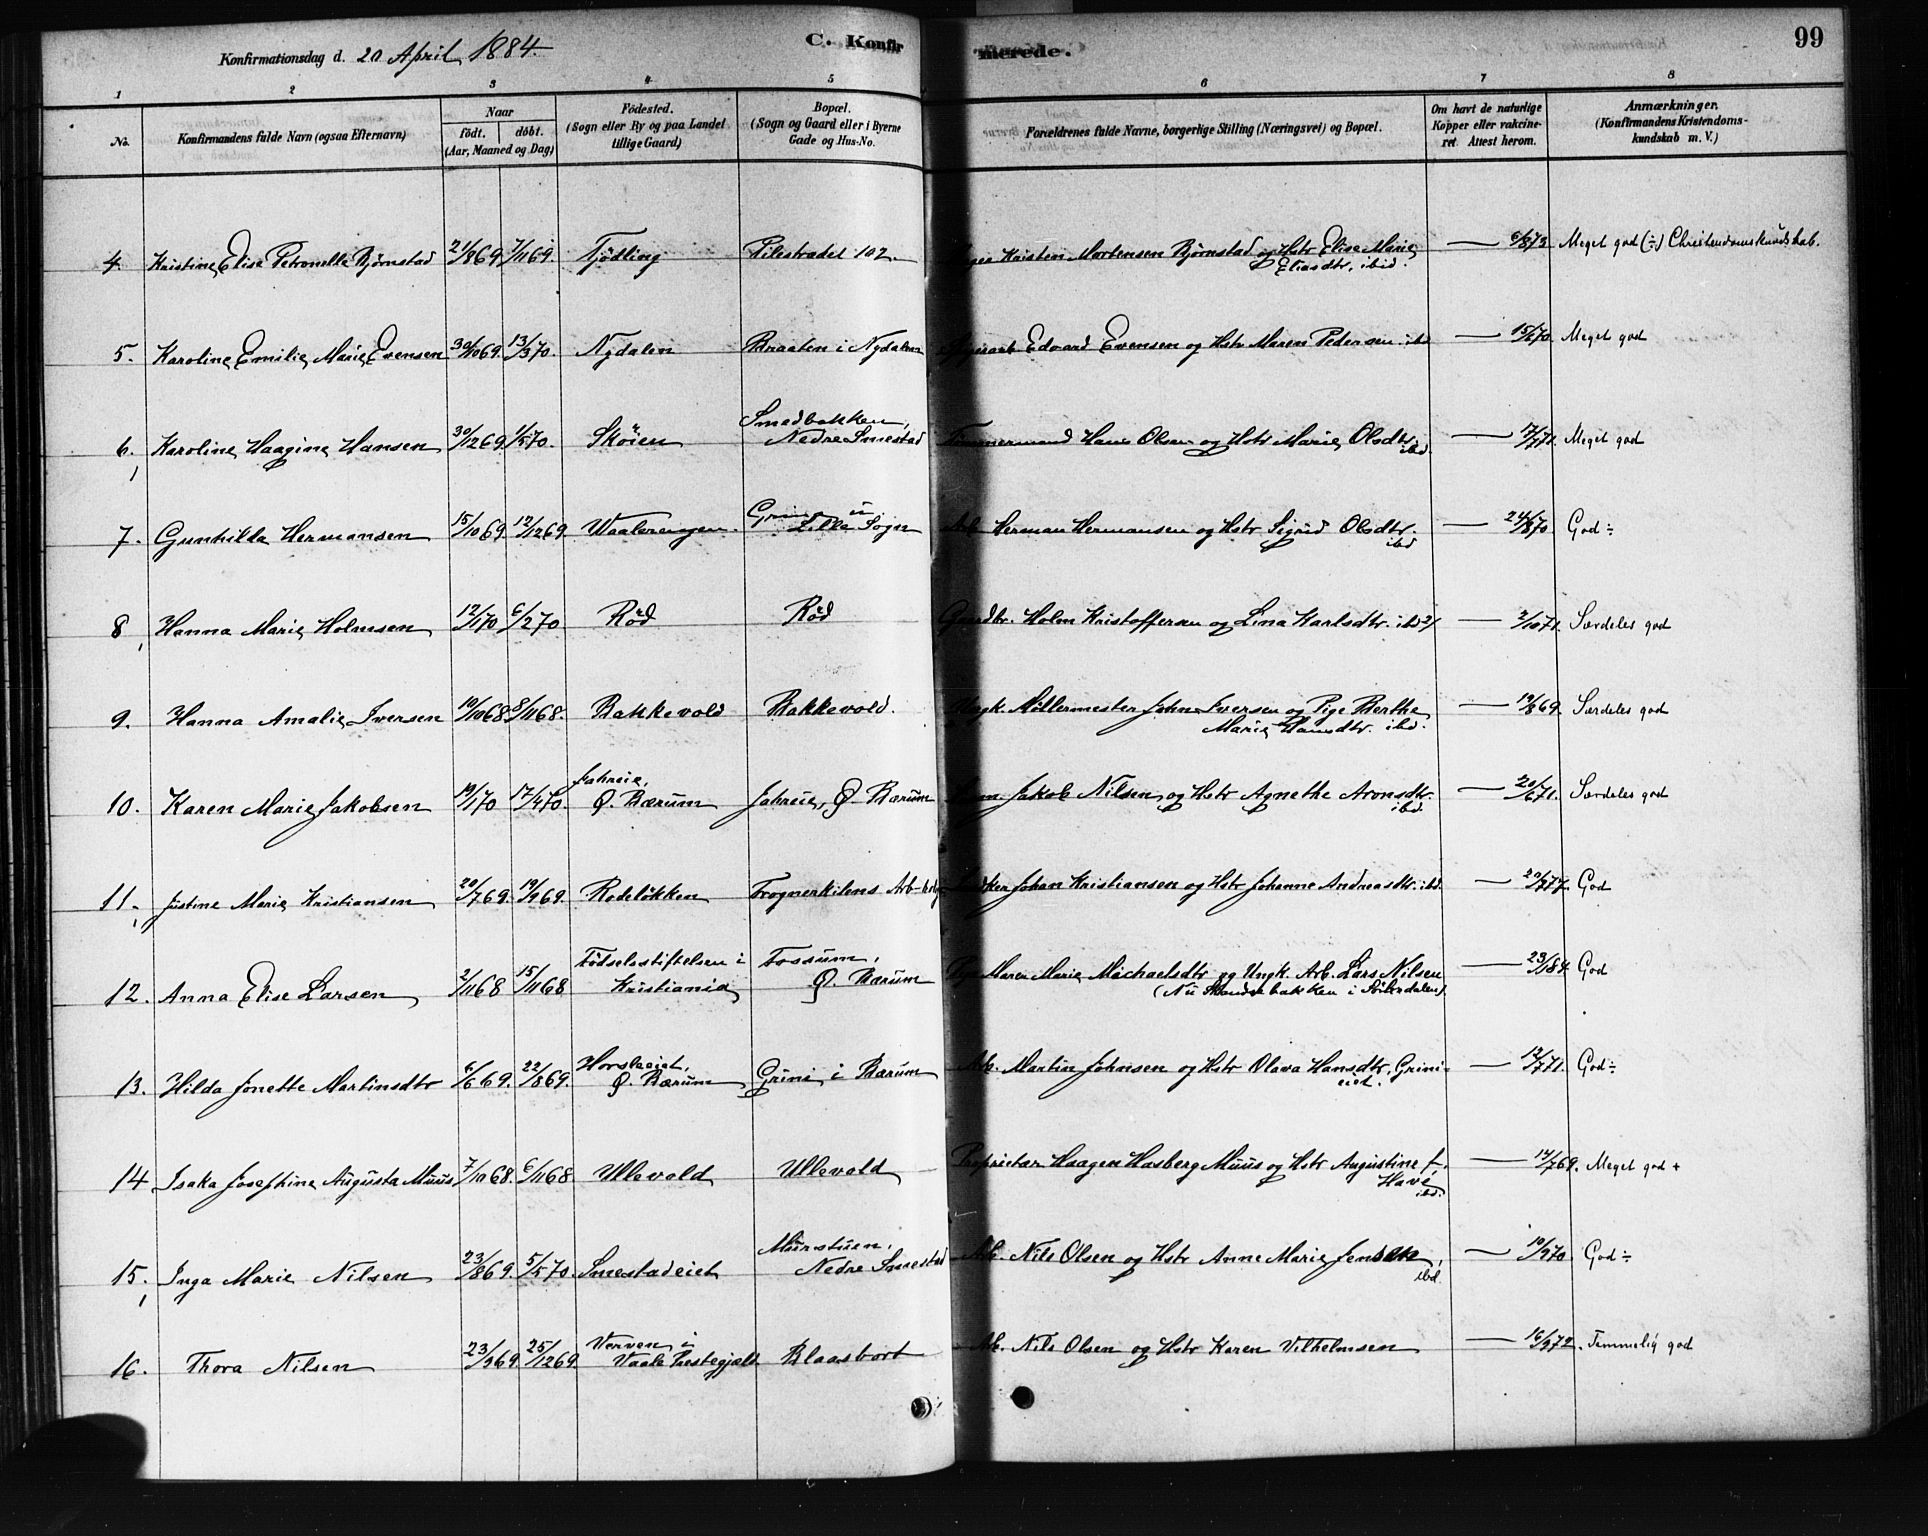 Konfirmationsdag d. 20 April 1884.
C. Konfir
merede.
99
1 2 3 4 5 6 7 8
No.
Konfirmandens fulde Navn (ogsaa Efternavn)
Naar
födt. döbt.
(Aar, Maaned og Dag)
Födested.
(Sogn eller By og paa Landet
tillige Gaard)
Bopæl.
(Sogn og Gaard eller i Byerne
Gade og Hus-No.
Forældrenes fulde Navne, borgerlige Stilling (Næringsvei) og Bopæl.
Om havt de naturlige
Kopper eller vakcine-
ret. Attest herom.
Anmærkninger.
(Konfirmandens Kristendoms-
kundskab m. V.)
4. Kristine Elise Petronelle Bjørnstad 21/869 7/1169. Tjödling Pilestrædet 102. Kristen Mortensen Bjørnstad og Hstr Elise Marie — 6/873 Meget god (÷) Christendomskundskab.
Eliasdtr. ibid.
5. Karoline Emilie Marie Evensen 30/1069. 13/370. Nydalen Braaten i Nydalen Edvard Evensen og Hstr Maren Pedersen ibd — 15/670. Meget god
6. Karoline Haagine Hansen 30/1269. 1/570. Sköien Smedbakken,
Nedre Smestad Tømmermand Hans Olsen og Hstr Marie Olsdtr. — 17/771. Meget god
ibd.
7. Gunhilda Hermansen 15/1069. 12/1269. Waalerengen. Lille Sogn Arb. Herman Hermansen og Hstr Sigrid Olsdtr. — 24/870. God ÷
ibd
8. Hanna Marie Holmsen 12/170 6/270. Röd Röd Gaardbr. Holm Kristoffersen og Lina Karlsdtr. ibd — 2/1071. Særdeles god
9. Hanna Amalie Iversen 19/1068. 8/1168. Bakkevold Bakkevold. Ungk. Möllermester John Iversen og Pige Berthe — 19/869. Særdeles god
Marie Hansdtr. ibd.
10. Karen Marie Jakobsen 19/170 17/470. Jahreie,
Ø. Bærum Jahreie, Ø. Bærum Jakob Nilsen og Hstr Agnethe Aronsdtr. — 20/671. Særdeles god
ibd.
11. Justine Marie Kristiansen 20/769. 19/969. Rodelökken Frognerkilens Johan Kristiansen og Hstr Johanne Andreasdtr. ibd. — 20/777. God
12. Anna Elise Larsen 2/1168 15/1168 Födselsstiftelsen i
Kristiania Fossum,
Ø. Bærum Pige Maren Marie Michaelsdtr og Ungk. Arb. Lars Nilsen — 23/184. God
13. Hilda Jonette Martinsdtr 6/669. 22/869. Horsleeiet,
Ø. Bærum Grini i Bærum Arb. Martin Johnsen og Hstr Olava Hansdtr, Grini- — 12/771. God ÷
eiet.
14 Isaka Josephine Augusta Muus 7/1068. 6/1168 Ullevold Ullevold Proprietær Haagen Hasberg Muus og Hstr Augustine f. — 14/769. Meget god +
Have
ibd.
15. Inga Marie Nilsen 23/869. 5/570. Smestadeiet Murstuen,
Nedre Smestad Arb. Nils Olsen og Hstr Anne Marie Jensen, — 10/970. God ÷
ibd.
16. Thora Nilsen 23/969. 25/1269. Verven i
Vaale Prestegjeld Blaasbort Arb. Nils Olsen og Hstr Karen Vilhelmsen — 16/972. Temmelig god